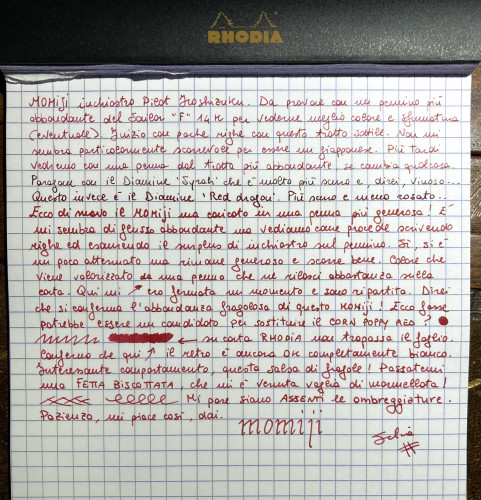 RHODIA
MOMIJI inchiostro Pilot Iroshizuku. Da provare con un pennino più
abbondante del Sailor "F" 14K per vederne meglio colore e sfumatura
(eventuale). Inizio con poche righe con questo tratto sottile. Non mi
sembra particolarmente scorrevole per essere un giapponese. Più tardi
vedremo con una penna dal tratto più abbondante, se cambia qualcosa.
Paragone con il Diamine 'Syrah' che è molto più scuro e, direi, vinoso...
Questo invece è il Diamine 'Red dragon'. Più scuro e meno rosato...
Ecco di nuovo il MOMIJI ma caricato in una penna più generosa! E
mi sembra di flusso abbondante ma vediamo come procede scrivendo
righe ed esaurendo il surplus di inchiostro sul pennino. Sì, si è
un poco attenuato ma rimane generoso e scorre bene. Colore che
viene valorizzato da una penna che ne rilasci abbastanza sulla
carta. Qui mi ero fermata un momento e sono ripartita. Direi
che si conferma l'abbondanza fragolosa di questo MOMIJI! Ecco forse
potrebbe essere un candidato per sostituire il CORN POPPY RED?
su carta RHODIA non trapassa il foglio.
Confermo che qui il retro è ancora OK completamente bianco.
Interessante comportamento, questa salsa di fragole! Passatemi
una FETTA BISCOTTATA, che mi è venuta voglia di marmellata!
Mi pare siano ASSENTI le ombreggiature.
Pazienza, mi piace così, dai.
momiji